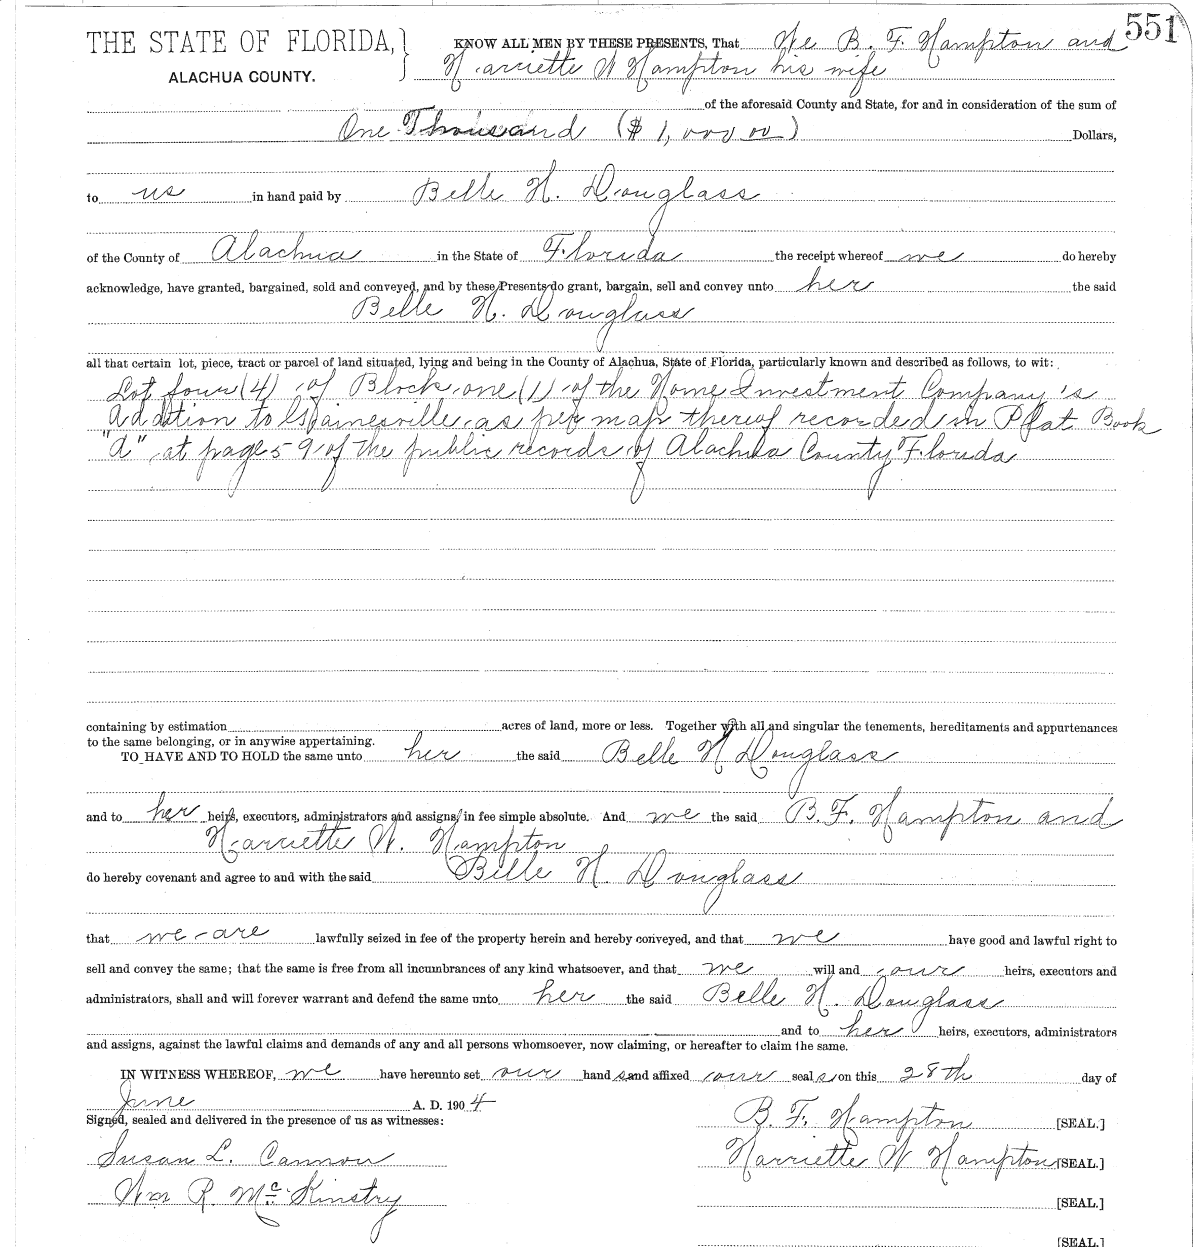 551
THE STATE OF FLORIDA, } KNOW ALL MEN BY THESE PRESENTS, That We B. F. Hampton and
ALACHUA COUNTY. Harriette W Hampton his wife
of the aforesaid County and State, for and in consideration of the sum of
One Thousand ($1,000.00) Dollars,
to us in hand paid by Belle H. Douglass
of the County of Alachua in the State of Florida the receipt whereof we do hereby
acknowledge, have granted, bargained, sold and conveyed, and by these Presents do grant, bargain, sell and convey unto her the said
Belle H. Douglass
all that certain lot, piece, tract or parcel of land situated, lying and being in the County of Alachua, State of Florida, particularly known and described as follows, to wit:
Lot four (4) of Block one (1) of the Home Investment Company's
Addition to Gainesville, as per map thereof recorded in Plat Book
"A" at page 59 of the public records of Alachua County Florida
containing by estimation acres of land, more or less. Together with all and singular the tenements, hereditaments and appurtenances
to the same belonging, or in anywise appertaining.
TO HAVE AND TO HOLD the same unto her the said Belle H Douglass
and to her heirs, executors, administrators and assigns, in fee simple absolute. And we the said B. F. Hampton and
Harriette W. Hampton
do hereby covenant and agree to and with the said Belle H. Douglass
that we are lawfully seized in fee of the property herein and hereby conveyed, and that we have good and lawful right to
sell and convey the same; that the same is free from all incumbrances of any kind whatsoever, and that we will and our heirs, executors and
administrators, shall and will forever warrant and defend the same unto her the said Belle H. Douglass
and to her heirs, executors, administrators
and assigns, against the lawful claims and demands of any and all persons whomsoever, now claiming, or hereafter to claim the same.
IN WITNESS WHEREOF, we have hereunto set our hands and affixed our seals on this 28th day of
June A. D. 1904
Signed, sealed and delivered in the presence of us as witnesses: B. F. Hampton [SEAL.]
Susan L. Cannon Harriette W Hampton [SEAL.]
Wm R. McKinstry [SEAL.]
[SEAL.]